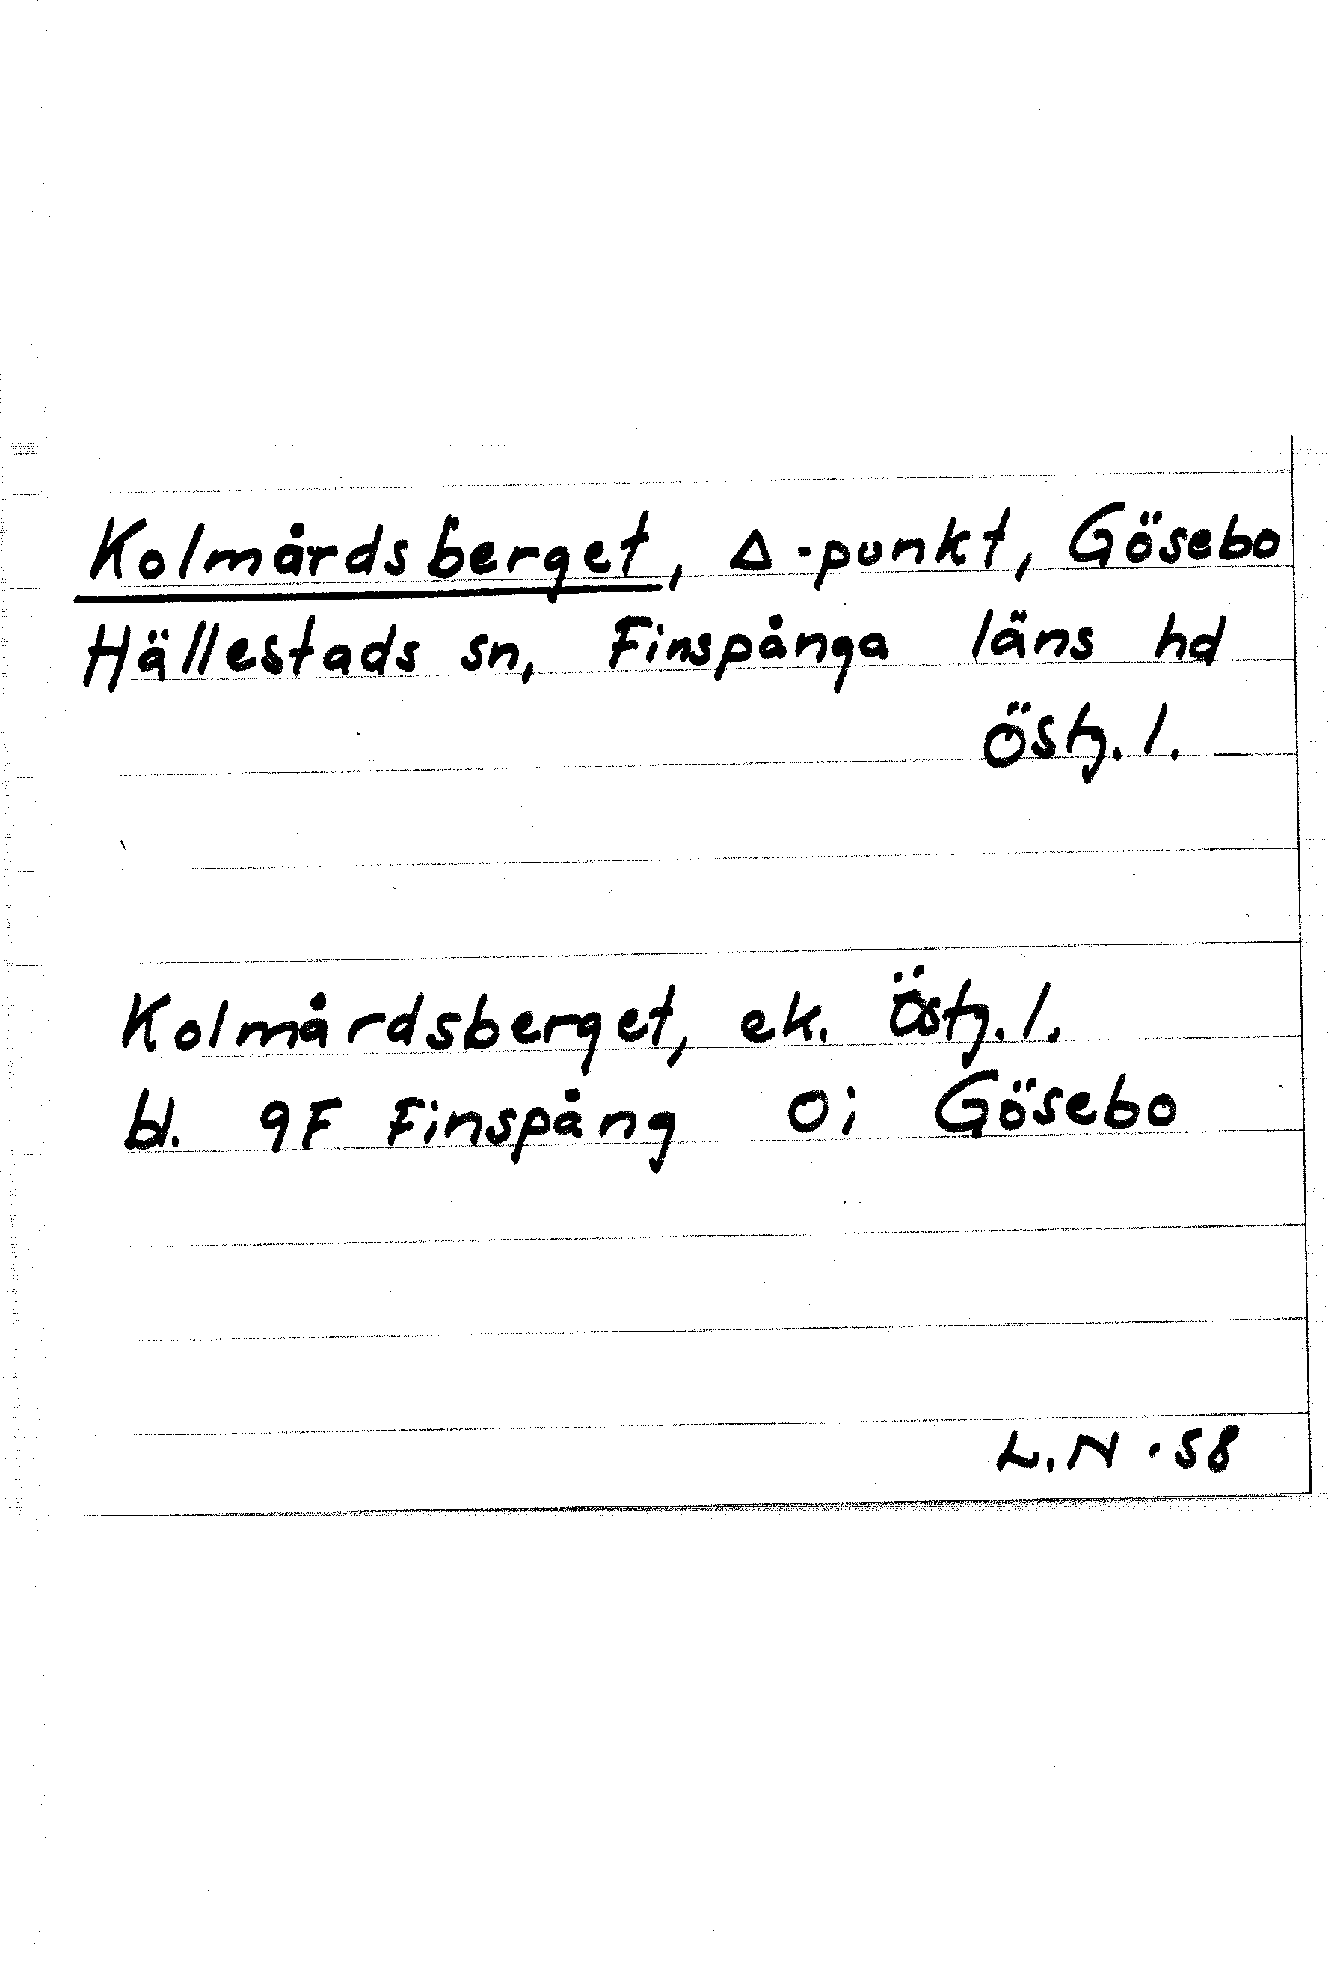 Kolmårdsberget, Δ-punkt, Gösebo
Hällestads sn, Finspånga läns hd
Östg. l.
Kolmårdsberget, ek. Östg. l.
bl. 9F Finspång 0i Gösebo
L.N. 58